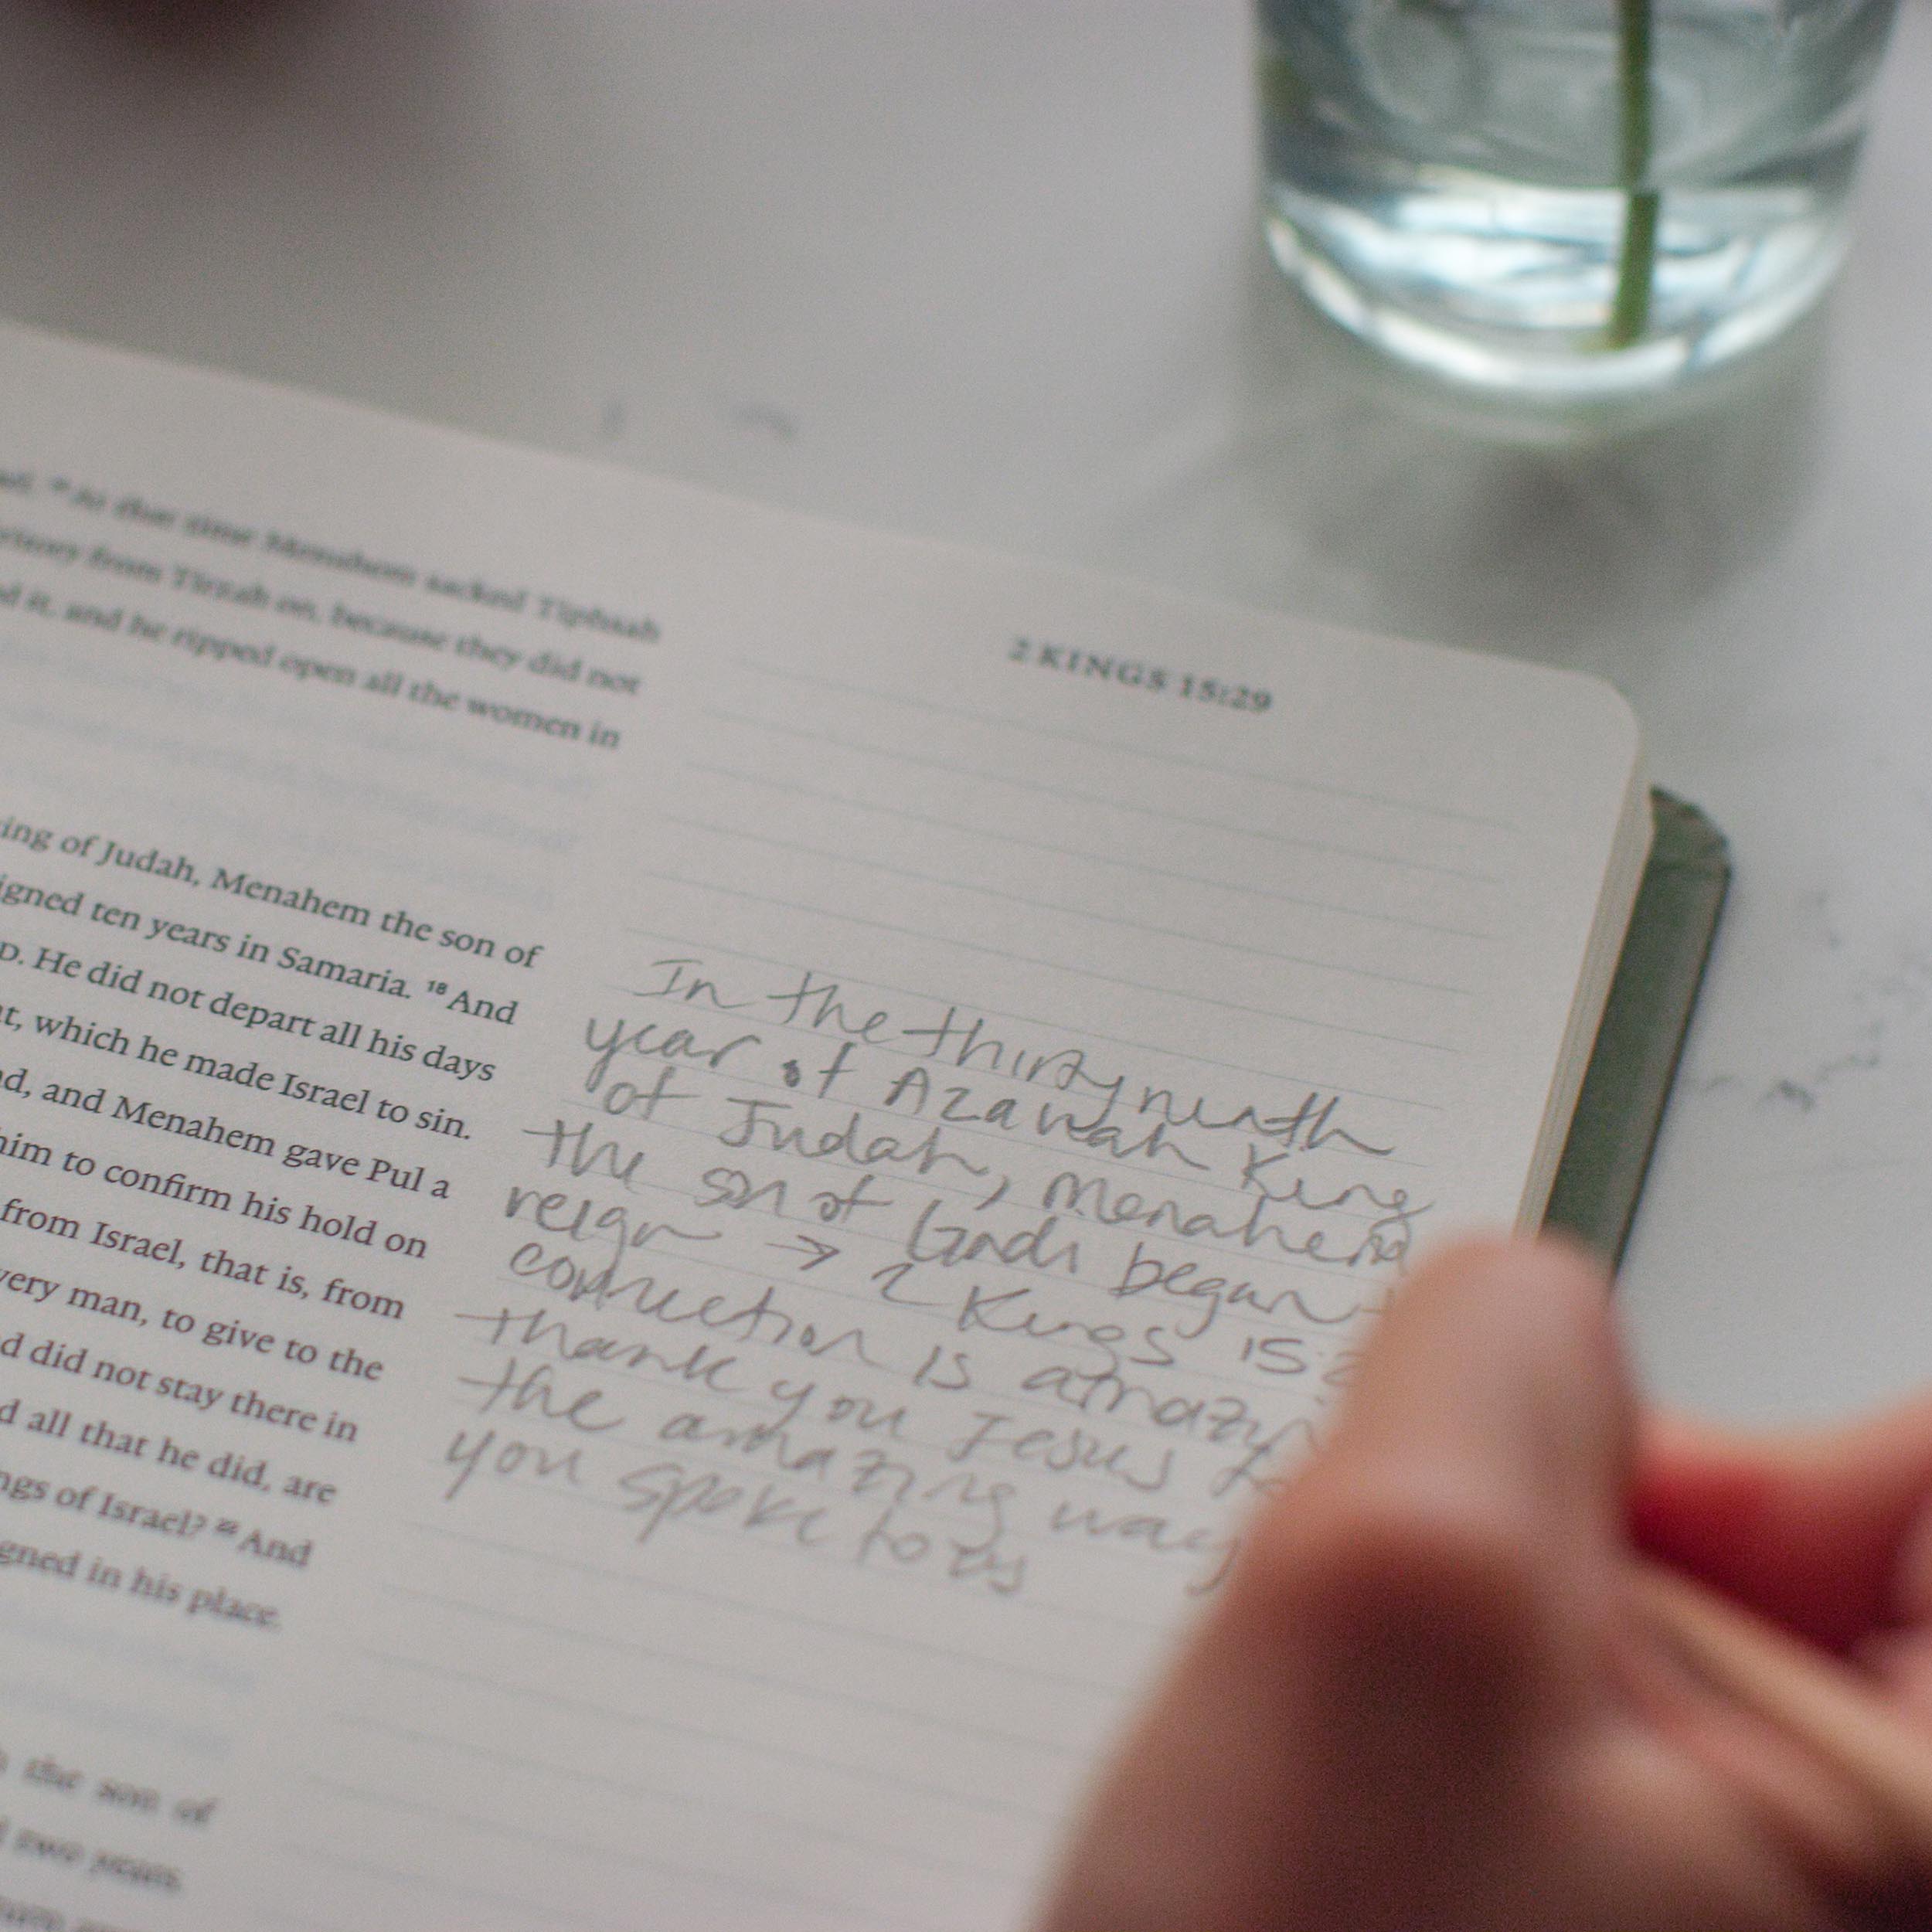 At that time Menahem sacked Tiphsah
from Tirzah on, because they did not
it, and he ripped open all the women in
2 KINGS 15:29
ing of Judah, Menahem the son of
igned ten years in Samaria. 18 And
D. He did not depart all his days
t, which he made Israel to sin.
d, and Menahem gave Pul a
him to confirm his hold on
from Israel, that is, from
very man, to give to the
d did not stay there in
d all that he did, are
ngs of Israel? 22 And
gned in his place.
the son of
two years.
In the thirty ninth
year of Azariah King
of Judah, Menahem
the son of Gadi began
reign → 2 Kings 15:
connection is amazin
thank you Jesus
the amazing way
you spoke to us